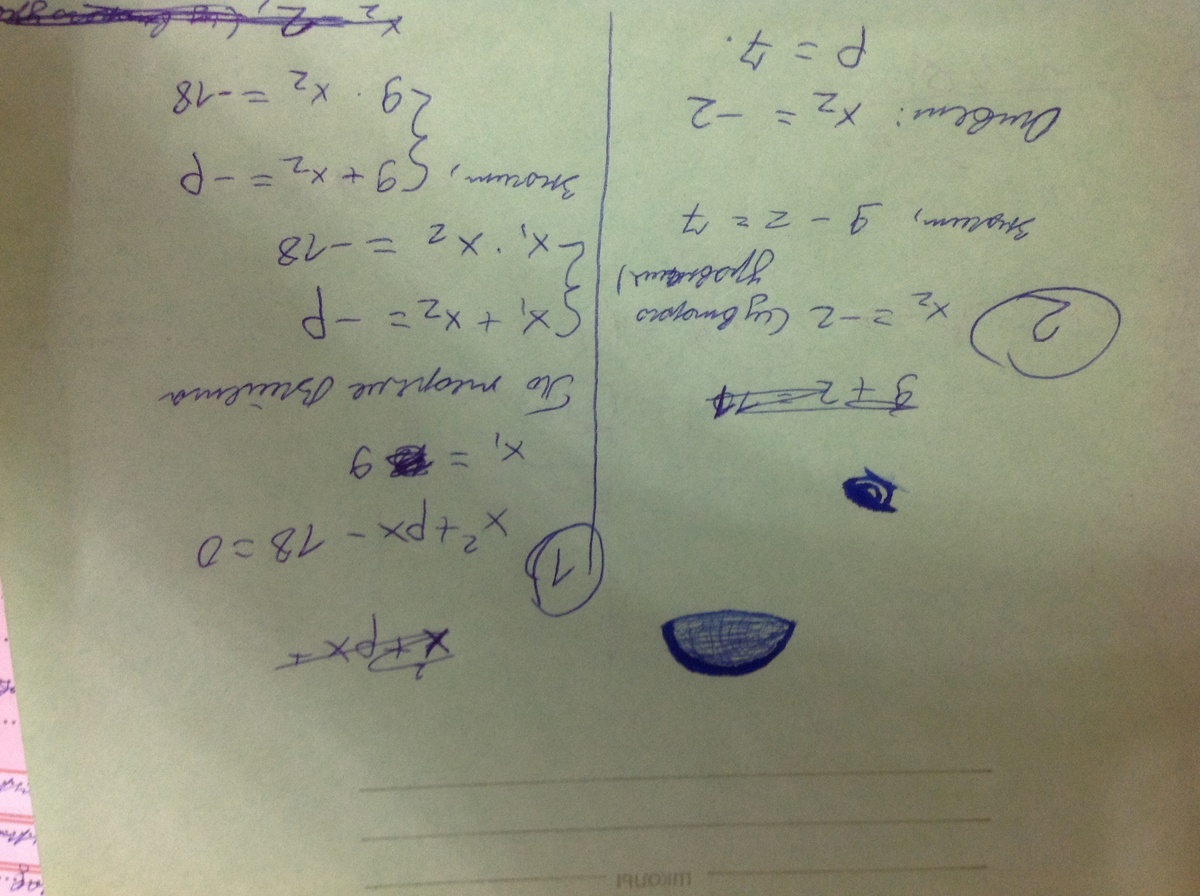 школы
x² + px +
1
x² + px - 18 = 0
x₁ = 9
По теореме Виета
{ x₁ + x₂ = -p
x₁ · x₂ = -18
Значит, { 9 + x₂ = -p
9 · x₂ = -18
9 + 2 = 11
2
x₂ = -2 (из второго
уравнения)
Значит, 9 - 2 = 7
Ответ: x₂ = -2
p = 7.